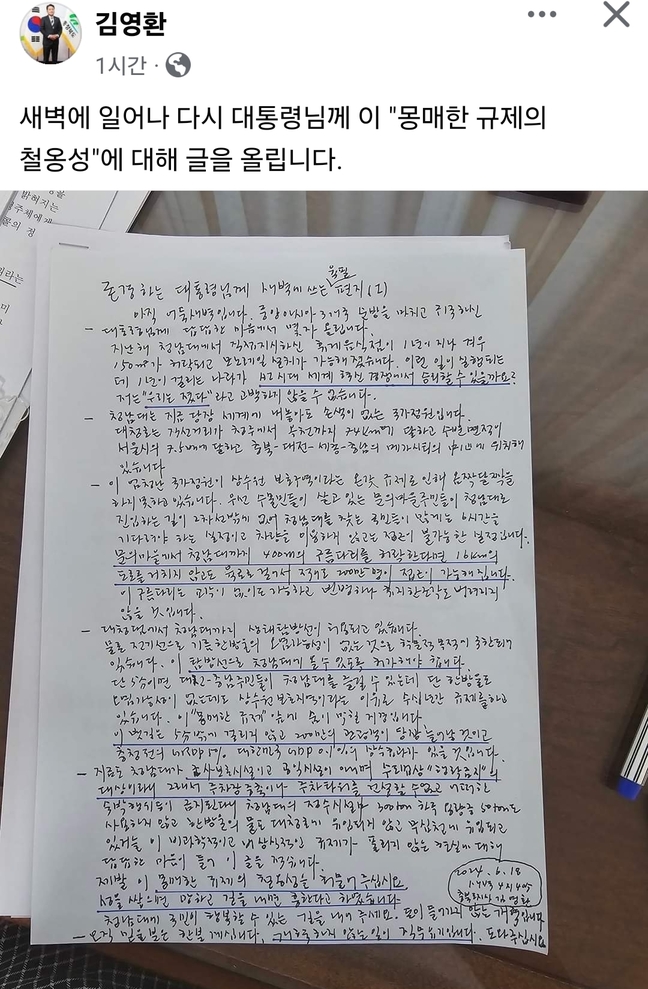 김영환
1시간
새벽에 일어나 다시 대통령님께 이 "몽매한 규제의
철옹성"에 대해 글을 올립니다.
밝혀지는
존경하는 대통령님께 새벽에 쓰는 육필 편지(1)
아직 어둑새벽입니다. 중앙아시아 3개국 순방을 마치고 귀국하신
- 대통령님께 답답한 마음에서 몇자 올립니다.
지난해 청남대에서 직접지시하신 휴게음식점이 1년이 지나 겨우
150㎡가 허락되고 모노레일 설치가 가능해졌습니다. 이런 일이 실행되는
데 1년이 걸리는 나라가 세계 혁신 경쟁에서 승리할 수 있을까요?
저는 "우리는 졌다"라고 고백하지 않을 수 없습니다.
- 청남대는 지금 당장 세계에 내놓아도 손색이 없는 국가정원입니다.
대청호는 직선거리가 청주에서 부천까지 달하고 수변면적이
서울시의 달하고 충북-대전-세종-충남의 메가시티의 중심에 위치해
있습니다
- 이 엄청난 국가정원이 상수원 보호구역이라는 온갖 규제로 인해 옴짝달싹을
하지 못하고 있습니다. 우선 수몰민들이 살고 있는 문의마을주민들이 청남대로
진입하는 길이 2차선밖에 없어 청남대를 찾는 국민들이 많게는 6시간을
기다려야 하는 실정이고 차량을 이용하지 않고는 접근이 불가능한 실정입니다.
문의마을에서 청남대까지 400m의 구름다리를 허락한다면 16km의
도로를 거치지 않고도 육로로 걸어서 접근이 가능해집니다.
이 구름다리는 없이도 가능하고
않을 것입니다.
- 대청댐에서 청남대까지 생태탐방선이 허용되고 있습니다.
물론 전기선으로 기름 한방울의 오염가능성이 없는 것으로 학문적 목적에 국한되어
있습니다. 이 탐방선으로 청남대에 올 수 있도록 허가해야 합니다.
단 5분이면 대전·충남주민들이 청남대를 즐길 수 있는데 단 한방울도
오염가능성이 없는데도 상수원보호구역이라는 이유로 수십년간 규제를 하고
있습니다. 이 "몽매한 규제" 앞에 숨이 막힐 지경입니다.
이 뱃길은 걸리지 않고 관광객이 당장 늘어날 것이고
충청권의 대한민국 GDP 0.1%의 상승효과가 있을 것입니다.
- 지금도 청남대가
대상이라 그래서 주차장 건설할 수 없고
숙박행위등이 금지된데다 청남대의 정수시설
사용하지 않고 한방울의 물도 대청호에 유입되지 않고 무심천에 유입되고
있거늘 이 비과학적이고 비상식적인 규제가 풀리지 않는 현실에 대해
답답한 마음이 들어 이 글을 적습니다.
제발 이 몽매한 규제의 철옹성을 허물어 주십시오
성을 쌓으면 망하고 길을 내면 흥한다고 하였습니다
청남대에 국민이 행복할 수 있는 길을 내어 주세요. 돈이 들어가지 않는 개혁입니다
- 오직 믿을 분은 한분 계십니다. 개혁하지 않는 일이 직무유기입니다. 도와주십시오
2024. 6. 18
충북지사 김영환